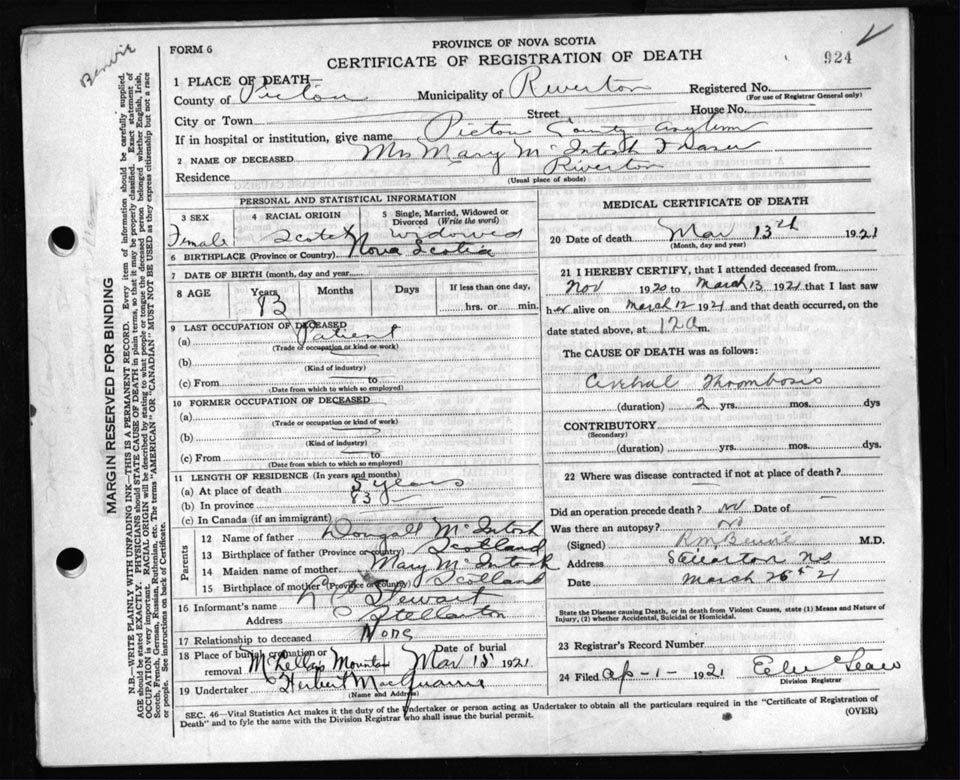 FORM 6
PROVINCE OF NOVA SCOTIA
CERTIFICATE OF REGISTRATION OF DEATH
924
1 PLACE OF DEATH—
County of Pictou Municipality of Riverton Registered No.
(For use of Registrar General only)
City or Town Street House No.
If in hospital or institution, give name Pictou County Asylum
2 NAME OF DECEASED Mrs Mary McIntosh Fraser
Residence Riverton
(Usual place of abode)
MARGIN RESERVED FOR BINDING
N.B.—WRITE PLAINLY, WITH UNFADING INK—THIS IS A PERMANENT RECORD. Every item of information should be carefully supplied.
AGE should be stated EXACTLY. PHYSICIANS should STATE CAUSE OF DEATH in plain terms, so that it may be properly classified. Exact statement of
OCCUPATION is very important. RACIAL ORIGIN will be described by stating to what people or tongue the deceased person belonged whether English, Irish,
Scotch, French, German, Russian, Ruthenian, etc. The terms "AMERICAN" OR "CANADIAN" MUST NOT BE USED as they express citizenship but not a race
or people. See instructions on back of Certificate.
PERSONAL AND STATISTICAL INFORMATION
3 SEX
Female
4 RACIAL ORIGIN
Scotch
5 Single, Married, Widowed or
Divorced (Write the word)
Widowed
6 BIRTHPLACE (Province or Country) Nova Scotia
7 DATE OF BIRTH (month, day and year)
8 AGE Years Months Days If less than one day,
83 hrs. or min.
9 LAST OCCUPATION OF DECEASED
(a) Patient
(Trade or occupation or kind or work)
(b)
(Kind of industry)
(c) From to
(Date from which to which so employed)
10 FORMER OCCUPATION OF DECEASED
(a)
(Trade or occupation or kind of work)
(b)
(Kind of industry)
(c) From to
(Date from which to which so employed)
11 LENGTH OF RESIDENCE (In years and months)
(a) At place of death 5 years
(b) In province 83
(c) In Canada (if an immigrant)
Parents
12 Name of father Dougall McIntosh
13 Birthplace of father (Province or country) Scotland
14 Maiden name of mother Mary McIntosh
15 Birthplace of mother (Province or country) Scotland
16 Informant's name Stewart
Address Stellarton
17 Relationship to deceased None
18 Place of burial cremation or
removal McLellans Mountain
Date of burial
Mar 15 1921
19 Undertaker Herbert MacQuarrie
(Name and Address)
MEDICAL CERTIFICATE OF DEATH
20 Date of death Mar 13th 1921
(Month, day and year)
21 I HEREBY CERTIFY, that I attended deceased from
Nov 1920 to March 13 1921 that I last saw
her alive on March 12 1921 and that death occurred, on the
date stated above, at 12 a m.
The CAUSE OF DEATH was as follows:
Cerebral Thrombosis
(duration) 2 yrs. mos. dys
CONTRIBUTORY
(Secondary)
(duration) yrs. mos. dys.
22 Where was disease contracted if not at place of death?
Did an operation precede death? No Date of
Was there an autopsy? No
(Signed) M.D.
Address Stellarton NS
Date March 26th 21
State the Disease causing Death, or in death from Violent Causes, state (1) Means and Nature of
Injury, (2) whether Accidental, Suicidal or Homicidal.
23 Registrar's Record Number
24 Filed Ap-1- 1921
Division Registrar
SEC. 46—Vital Statistics Act makes it the duty of the Undertaker or person acting as Undertaker to obtain all the particulars required in the "Certificate of Registration of
Death" and to fyle the same with the Division Registrar who shall issue the burial permit.
(OVER)